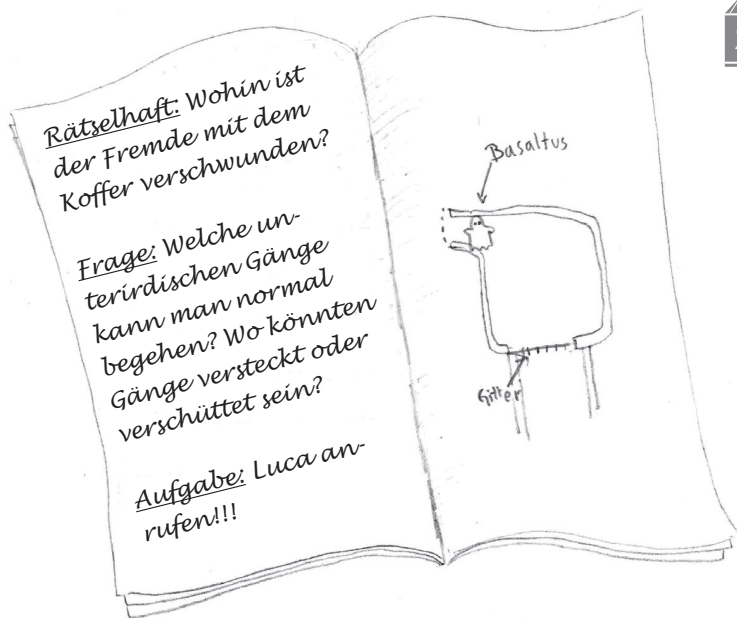 Rätselhaft: Wohin ist
der Fremde mit dem
Koffer verschwunden?
Frage: Welche un-
terirdischen Gänge
kann man normal
begehen? Wo könnten
Gänge versteckt oder
verschüttet sein?
Aufgabe: Luca an-
rufen!!!
Basaltus
Gitter